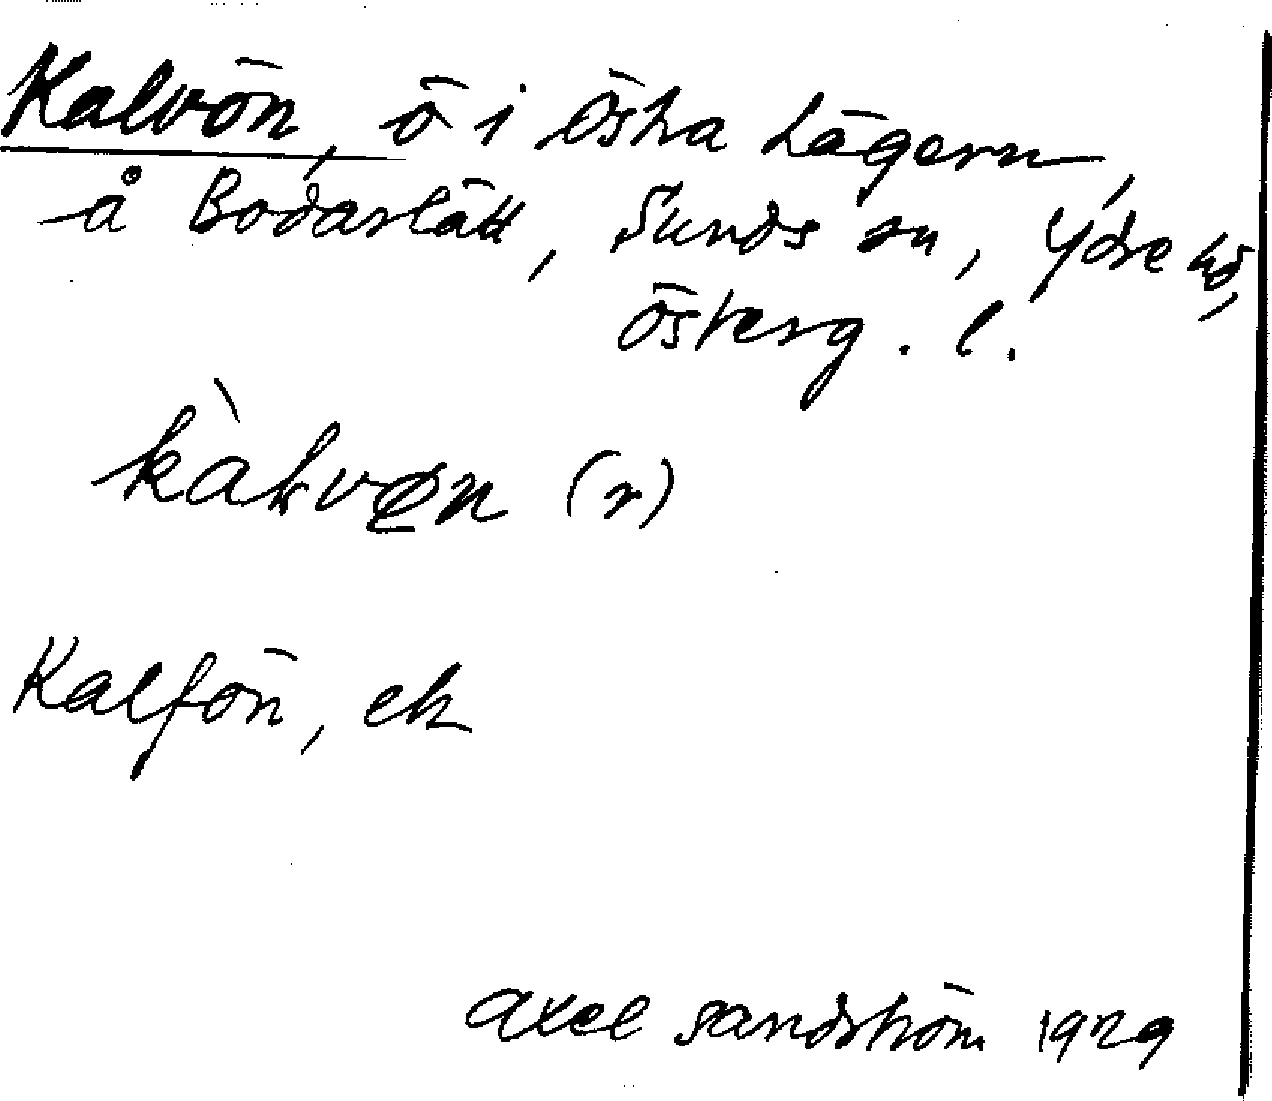 Kalvön, ö i Östra Lägern,
å Bodaslätt, Sunds sn, Ydre hd,
Österg. l.
kàlvøn (r)
Kalfön, ek
Axel Sandström 1929